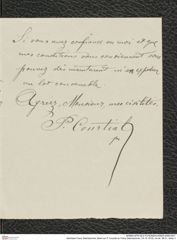 Si vous avez confiance en moi et que
mes conditions vous conviennent vous
pouvez dès maintenant m'expédier
un lot convenable
Agréez, Monsieur, mes civilités.
P. Courtial